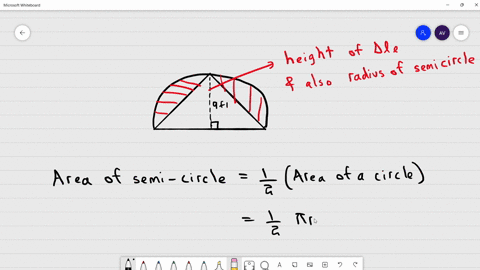 Microsoft Whiteboard
AV
height of Δle
& also radius of semicircle
9ft
Area of semi-circle = 1/2 (Area of a circle)
= 1/2 πr